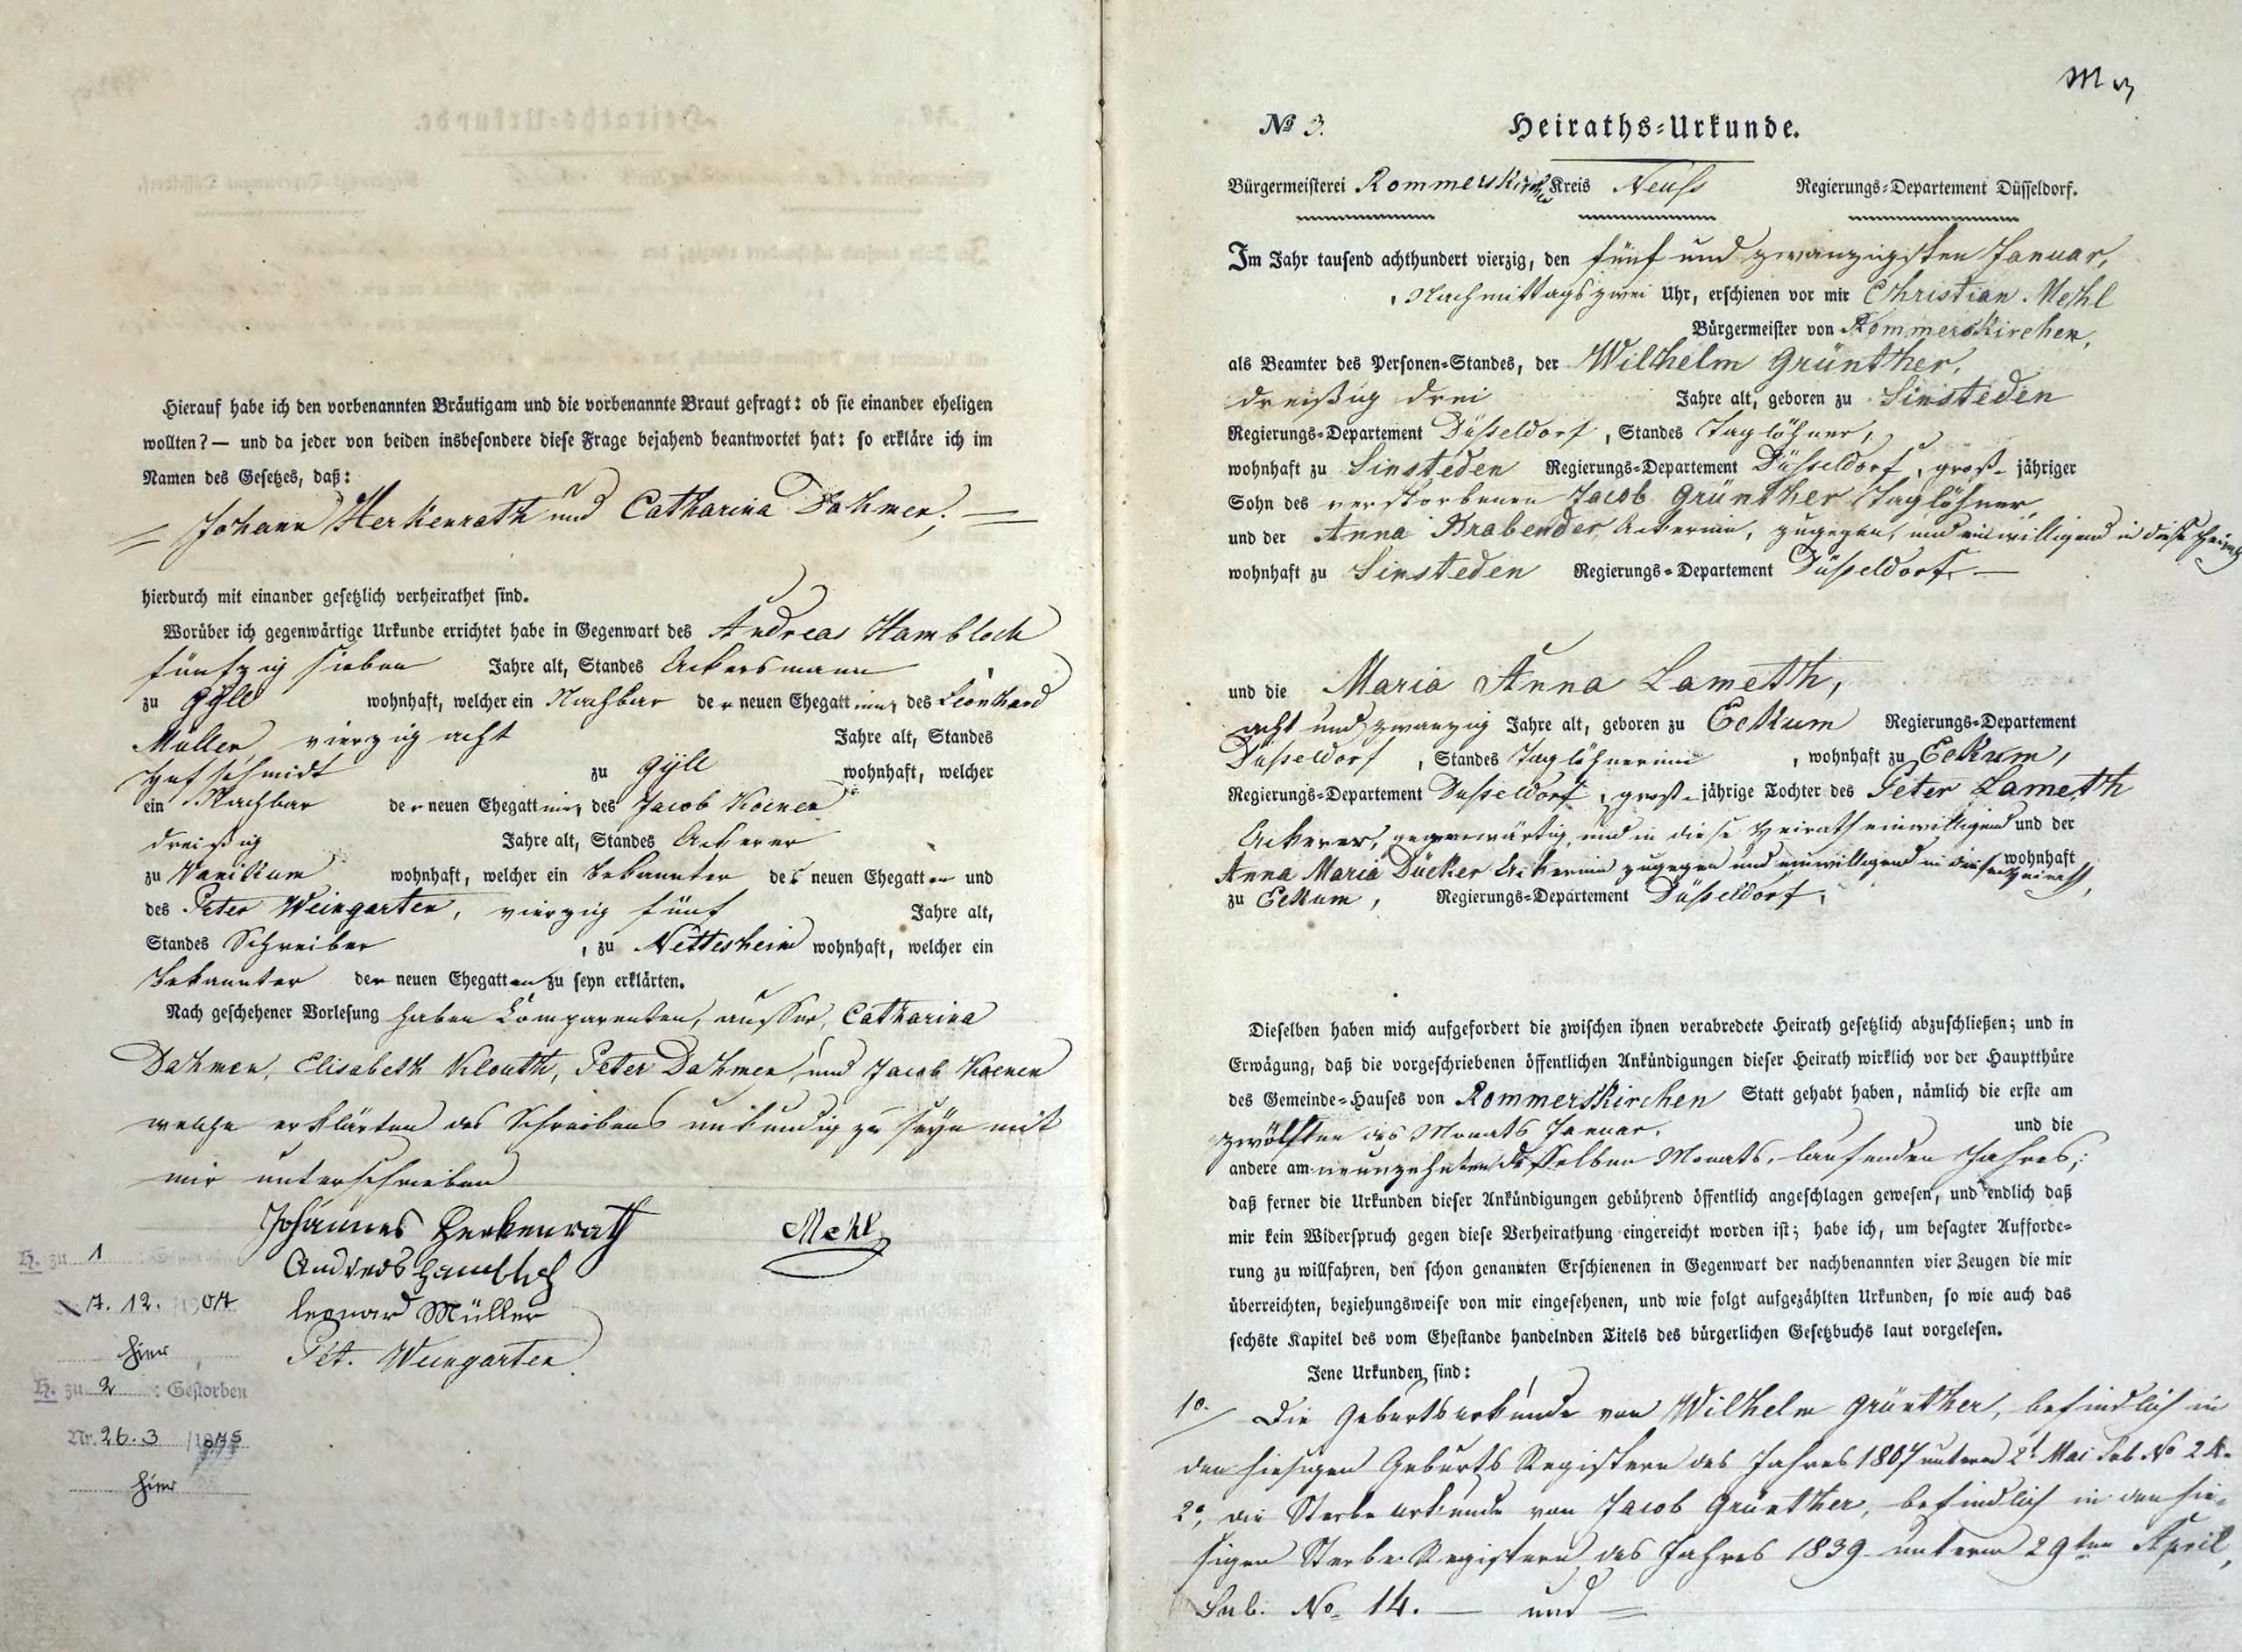 Hierauf habe ich den vorbenannten Bräutigam und die vorbenannte Braut gefragt: ob sie einander eheligen
wollten? — und da jeder von beiden insbesondere diese Frage bejahend beantwortet hat: so erkläre ich im
Namen des Gesetzes, daß:
Johann Herkenrath und Catharina Dahmen.
hierdurch mit einander gesetzlich verheirathet sind.
Worüber ich gegenwärtige Urkunde errichtet habe in Gegenwart des Andreas Hambloch
fünfzig sieben Jahre alt, Standes Ackersmann
zu Gyll wohnhaft, welcher ein Nachbar der neuen Ehegattinn, des Leonhard
Müller vierzig acht Jahre alt, Standes
Hufschmidt zu Gyll wohnhaft, welcher
ein Nachbar der neuen Ehegattinn, des Jacob Koenen
dreißig Jahre alt, Standes Ackerer
zu Vanikum wohnhaft, welcher ein Bekannter des neuen Ehegatten und
des Peter Weingarten, vierzig fünf Jahre alt,
Standes Schreiber, zu Nettesheim wohnhaft, welcher ein
Bekannter der neuen Ehegatten zu seyn erklärten.
Nach geschehener Vorlesung haben Comparenten, ausser, Catharina
Dahmen, Elisabeth Klouth, Peter Dahmen, und Jacob Koenen
welche erklärten des Schreibens unkundig zu seyn mit
mir unterschrieben
Johannes Herkenrath Mehl
Andreas Hambloch
Leonard Müller
Pet. Weingarten
H. zu 1
7. 12. 07
hier
H. zu 2 : Gestorben
Nr. 26. 3 1875
hier
№ 3. Heiraths-Urkunde.
Bürgermeisterei Rommerskirchen Kreis Neuss Regierungs-Departement Düsseldorf.
Im Jahr tausend achthundert vierzig, den fünf und zwanzigsten Januar,
Nachmittags zwei Uhr, erschienen vor mir Christian Mehl
Bürgermeister von Rommerskirchen,
als Beamter des Personen-Standes, der Wilhelm Grünther,
dreißig drei Jahre alt, geboren zu Sinsteden
Regierungs-Departement Düsseldorf, Standes Taglöhner,
wohnhaft zu Sinsteden Regierungs-Departement Düsseldorf, groß-jähriger
Sohn des verstorbenen Jacob Grünther Taglöhner
und der Anna Brabender, Ackerinn, zugegen, und einwilligend in diese Heirath
wohnhaft zu Sinsteden Regierungs-Departement Düsseldorf. —
und die Maria Anna Lameth,
acht und zwanzig Jahre alt, geboren zu Eckum Regierungs-Departement
Düsseldorf, Standes Taglöhnerinn, wohnhaft zu Eckum,
Regierungs-Departement Düsseldorf, groß-jährige Tochter des Peter Lameth
Ackerer, gegenwärtig, und in diese Heirath einwilligend und der
Anna Maria Dücker Ackerinn zugegen und einwilligend in diese Heirath, wohnhaft
zu Eckum, Regierungs-Departement Düsseldorf,
Dieselben haben mich aufgefordert die zwischen ihnen verabredete Heirath gesetzlich abzuschließen; und in
Erwägung, daß die vorgeschriebenen öffentlichen Ankündigungen dieser Heirath wirklich vor der Hauptthüre
des Gemeinde-Hauses von Rommerskirchen Statt gehabt haben, nämlich die erste am
zwölften des Monats Januar, und die
andere am neunzehnten desselben Monats, laufenden Jahres,
daß ferner die Urkunden dieser Ankündigungen gebührend öffentlich angeschlagen gewesen, und endlich daß
mir kein Widerspruch gegen diese Verheirathung eingereicht worden ist; habe ich, um besagter Aufforde-
rung zu willfahren, den schon genannten Erschienenen in Gegenwart der nachbenannten vier Zeugen die mir
überreichten, beziehungsweise von mir eingesehenen, und wie folgt aufgezählten Urkunden, so wie auch das
sechste Kapitel des vom Ehestande handelnden Titels des bürgerlichen Gesetzbuchs laut vorgelesen.
Jene Urkunden sind:
1o. Die Geburtsurkunde von Wilhelm Grünther, befindlich in
den hiesigen Geburts Registern des Jahres 1807 unterm 2t Mai sub No 24.
2o, die Sterbeurkunde von Jacob Grünther, befindlich in den hie-
sigen Sterbe Registern des Jahres 1839 unterm 29ten April,
Sub. No 14. — und —